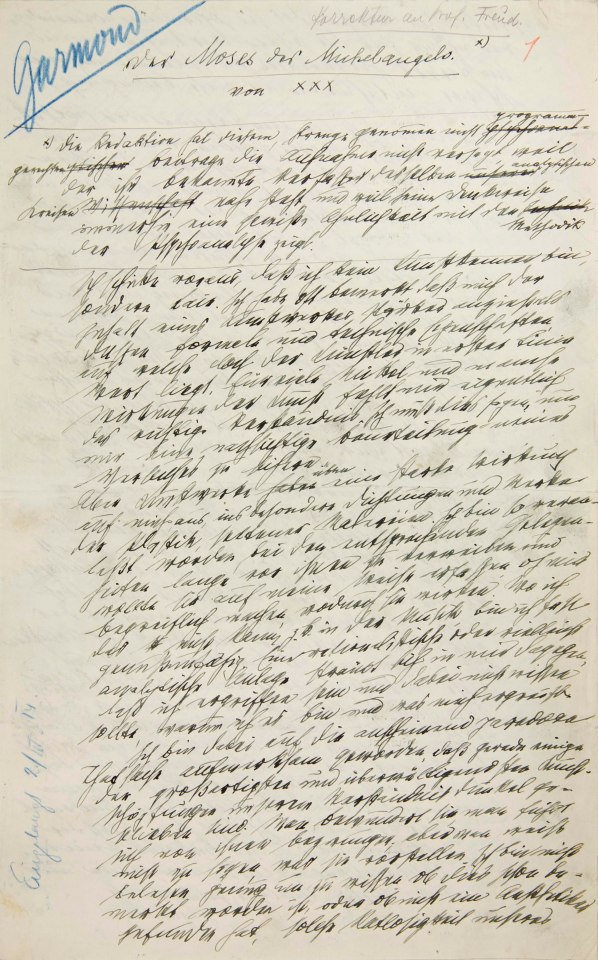 Korrektur an Prof. Freud.
Garmond
1
Der Moses des Michelangelo. x)
von xxx
x) Die Redaktion hat diesem, strenge genommen nicht programm-
gerechten Beitrage die Aufnahme nicht versagt weil
der ihr bekannte Verfasser analytischen
Kreisen nahe steht und weil seine Denkweise
immerhin eine gewisse Ähnlichkeit mit der Methodik
der Psychoanalyse zeigt.
Ich schicke voraus, daß ich kein Kunstkenner bin,
sondern Laie. Ich habe oft bemerkt daß mich der
Inhalt eines Kunstwerkes stärker anzieht als
dessen formale und technische Eigenschaften
auf welche doch der Künstler in erster Linie
Wert legt. Für viele Mittel und manche
Wirkungen der Kunst fehlt mir eigentlich
das richtige Verständnis. Ich muß dies sagen, um
mir eine nachsichtige Beurteilung meines
Versuches zu sichern
Aber Kunstwerke üben eine starke Wirkung
auf mich aus, insbesondere Dichtungen und Werke
der Plastik seltener Malereien. Ich bin so veran-
laßt worden bei den entsprechenden Gelegen-
heiten lange vor ihnen zu verweilen und
wollte sie auf meine Weise erfassen dh mir
begreiflich machen wodurch sie wirken. Wo ich
das nicht kann, zb in der Musik bin ich fast
genußunfähig. Eine rationalistische oder vielleicht
analytische Anlage sträubt sich in mir dagegen,
daß ich ergriffen sein und dabei nicht wissen
sollte, warum ich es bin und was mich ergreift
Ich bin dabei auf die anscheinend paradoxe
Thatsache aufmerksam geworden daß gerade einige
der großartigsten und überwältigendsten Kunst-
schöpfungen unserem Verständnis dunkel ge-
blieben sind. Man bewundert sie man fühlt
sich von ihnen bezwungen, aber man weiß
nicht zu sagen was sie vorstellen. Ich bin nicht
belesen genug um zu wissen ob dies schon be-
merkt worden ist, oder ob nicht ein Aesthetiker
gefunden hat, solche Ratlosigkeit unseres
Eingelangt 2/III. 14.